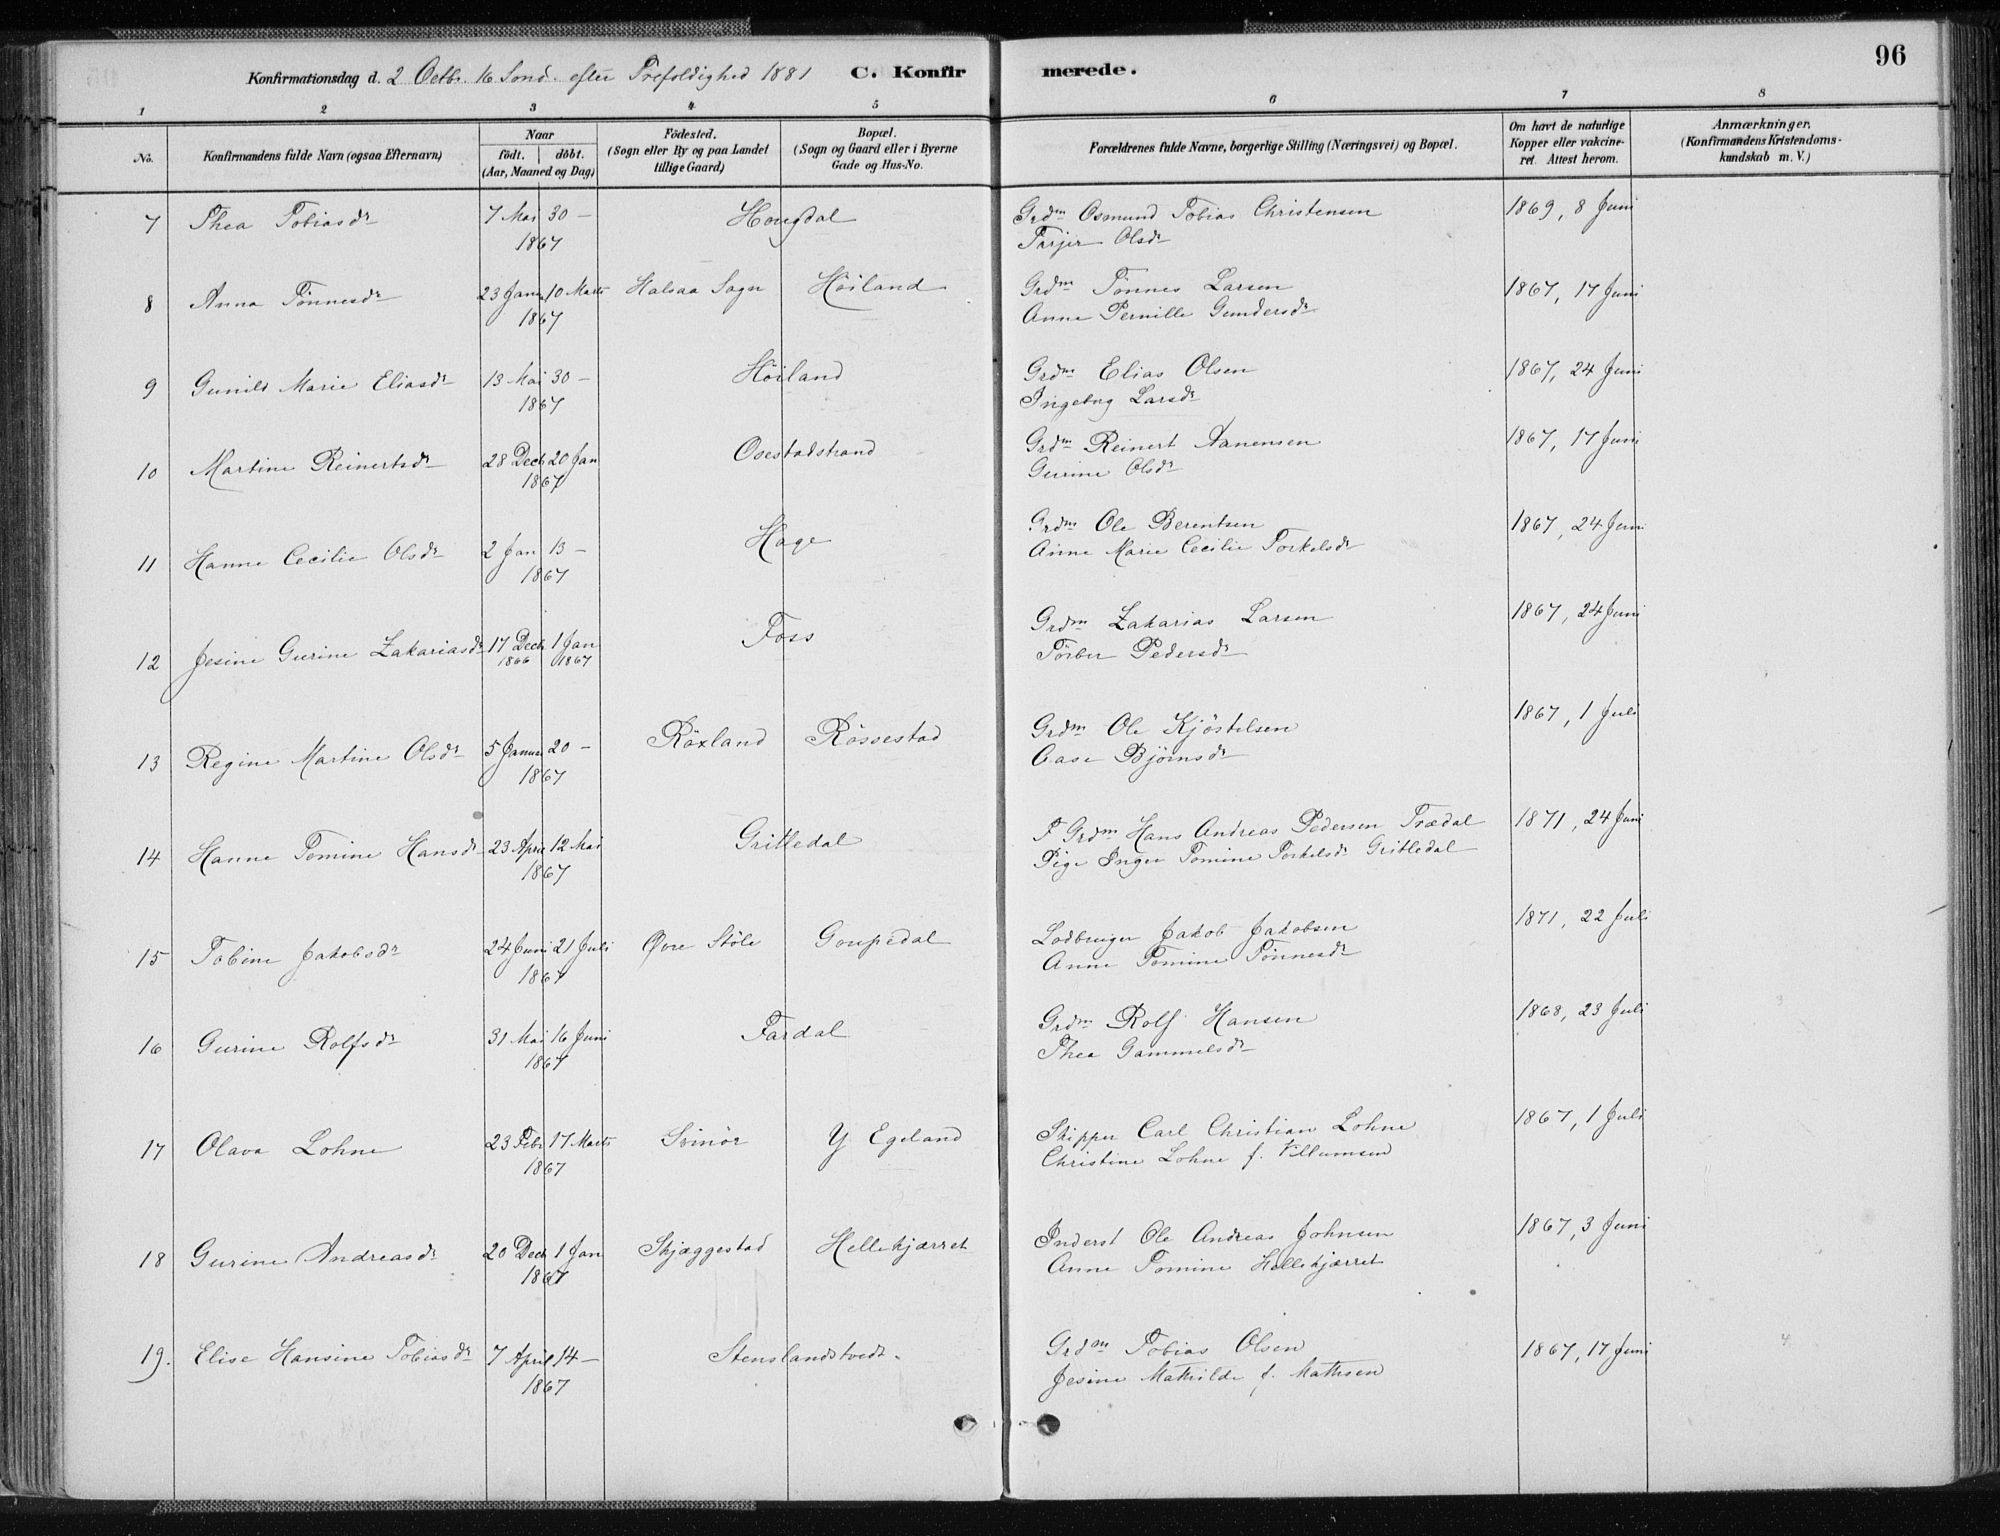 96
Konfirmationsdag d. 2 Octbr. 16 Sønd. efter Trefoldighed 1881 C. Konfirmerede.
1 2 3 4 5 6 7 8
No. Konfirmandens fulde Navn (ogsaa Efternavn) Naar født. døbt. (Aar, Maaned og Dag) Fødested. (Sogn eller By og paa Landet tillige Gaard) Bopæl. (Sogn og Gaard eller i Byerne Gade og Hus-No. Forældrenes fulde Navne, borgerlige Stilling (Næringsvei) og Bopæl. Om havt de naturlige Kopper eller vakcineret. Attest herom. Anmærkninger. (Konfirmandens Kristendomskundskab m. V.)
7 Thea Tobiasdr 7 Mai 30 – 1867 Hougdal Grdm Osmund Tobias Christensen 1869, 8 Juni
Tarjer Olsdr
8 Anna Tønnesdr 23 Janu 10 Marts 1867 Halsaa Sogn Höiland Grdm Tønnes Larsen 1867, 17 Juni
Anne Pernille Gundersdr
9 Gunild Marie Eliasdr 13 Mai 30 – 1867 Höiland Grdm Elias Olsen 1867, 24 Juni
Ingebng Larsdr
10 Martine Reinertsdr 28 Decb 20 Jan 1867 Osestadstrand Grdm Reinert Aanensen 1867, 17 Juni
Gurine Olsdr
11 Hanne Cecilie Olsdr 2 Jan 13 – 1867 Hage Grdm Ole Berentsen 1867, 24 Juni
Anne Marie Cecilie Torkelsdr
12 Jesine Gurine Zakariasdr 17 Decb 1866 1 Jan 1867 Foss Grdm Zakarias Larsen 1867, 24 Juni
Törber Pedersdr
13 Regine Martine Olsdr 5 Januar 20 – 1867 Röxland Røssestad Grdm Ole Kjöstelsen 1867, 1 Juli
Aase Bjørnsdr
14 Hanne Tomine Hansdr 23 April 12 Mai 1867 Gritledal F Grdm Hans Andreas Pedersen Trædal 1871, 24 Juni
Pige Inger Tomine Torkelsdr Gritledal
15 Tobine Jakobsdr 24 Juni 21 Juli 1867 Øvre Støle Goupedal Lodbruger Jakob Jakobsen 1871, 22 Juli
Anne Tomine Tønnesdr
16 Gurine Rolfsdr 31 Mai 16 Juni 1867 Fardal Grdm Rolf Hansen 1868, 23 Juli
Thea Gammelsdr
17 Olava Lohne 23 Febr 17 Marts 1867 Svinör Y Egeland Skipper Carl Christian Lohne 1867, 1 Juli
Christine Lohne f. Villumsen
18 Gurine Andreasdr 20 Decb 1 Jan 1867 Skjæggestad Hellekjærret Inderst Ole Andreas Johnsen 1867, 3 Juni
Anne Tomine Hellekjærret
19. Elise Hansine Tobiasdr 7 April 14 – 1867 Stenslandstvedt. Grdm Tobias Olsen 1867, 17 Juni
Jesine Mathilde f. Mathsen